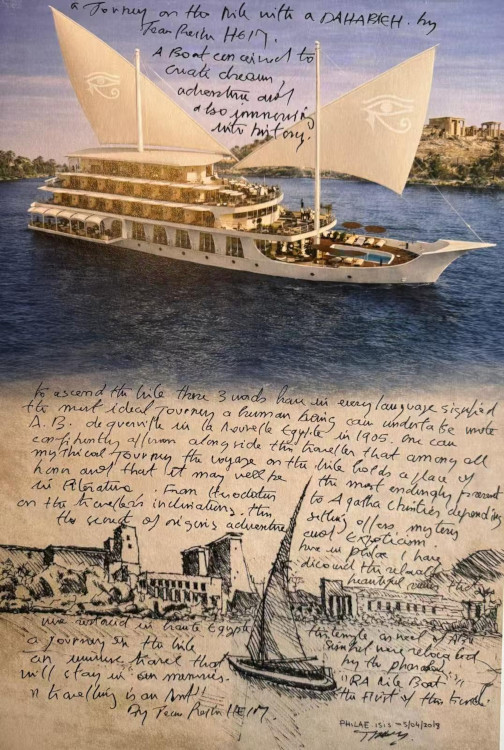 a Journey on the Nile with a DAHABIEH. by
Jean Pierre HEIM.
A Boat conceived to
create dream,
adventure and
also immersing
into history.
to ascend the Nile these 3 words have in every language signified
the most ideal Journey a human being can undertake wrote
A. B. de guerville in la Nouvelle Egypte in 1905. One can
confidently affirm alongside this traveller that among all
mythical Journey the voyage on the Nile holds a place of
honor and that it may well be the most endingly present
in literature. From Herodotus to Agatha Christies depending
on the travellers inclinations. this setting offers mystery
the secret of origins adventure and exoticism.
here in Philae I have
the
beautiful
we in haute Egypte
a Journey on the Nile
an travel that
will stay in our memories.
travelling is an Art!!
By Jean Pierre HEIM
the temple as well of Abu
Simbel were relocated
by the pharaoh
"RA Nile Boat"
the first of this kind.
PHILAE ISIS - 5/04/2019